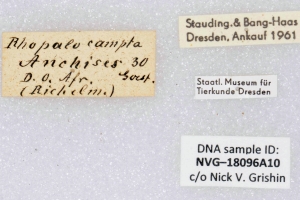 Rhopalocampta
Anchises 30
D. O. Afr. Gerst.
(Richelm.)
Stauding.& Bang-Haas
Dresden, Ankauf 1961
Staatl. Museum für
Tierkunde Dresden
DNA sample ID:
NVG–18096A10
c/o Nick V. Grishin